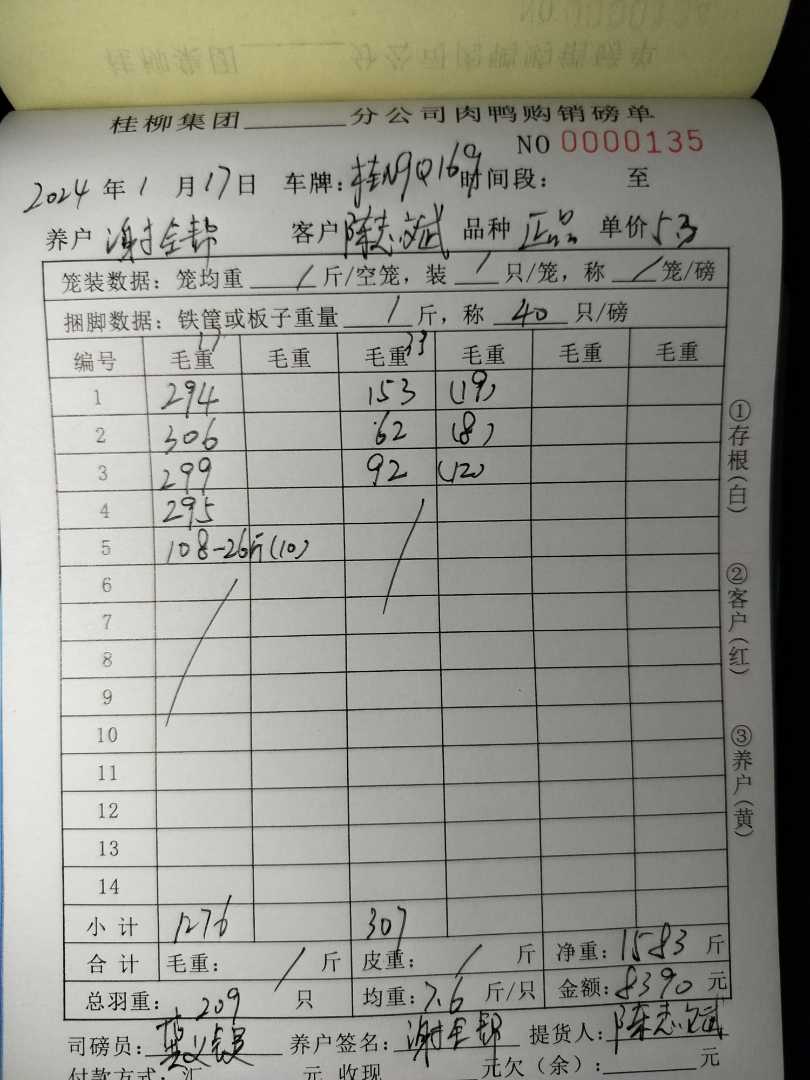 桂柳集团______分公司肉鸭购销磅单
NO 0000135
2024 年 1 月 17 日 车牌:桂N9Q169 时间段: 至
养户 谢全邦 客户 陈志斌 品种 正品 单价 5.3
笼装数据: 笼均重 / 斤/空笼, 装 / 只/笼, 称 / 笼/磅
捆脚数据: 铁筐或板子重量 / 斤, 称 40 只/磅
编号 毛重 毛重 毛重 毛重 毛重 毛重
1 294 153 (19)
2 306 62 (8)
3 299 92 (12)
4 295 /
5 108-26斤(10)
6 /
7
8
9
10
11
12
13
14
小计 1276 307
合计 毛重: / 斤 皮重: / 斤 净重: 1583 斤
总羽重: 209 只 均重: 7.6 斤/只 金额: 8390 元
司磅员: 养户签名: 谢全邦 提货人: 陈志斌
付款方式: 汇 元 收现 元欠(余): 元
①存根(白)
②客户(红)
③养户(黄)